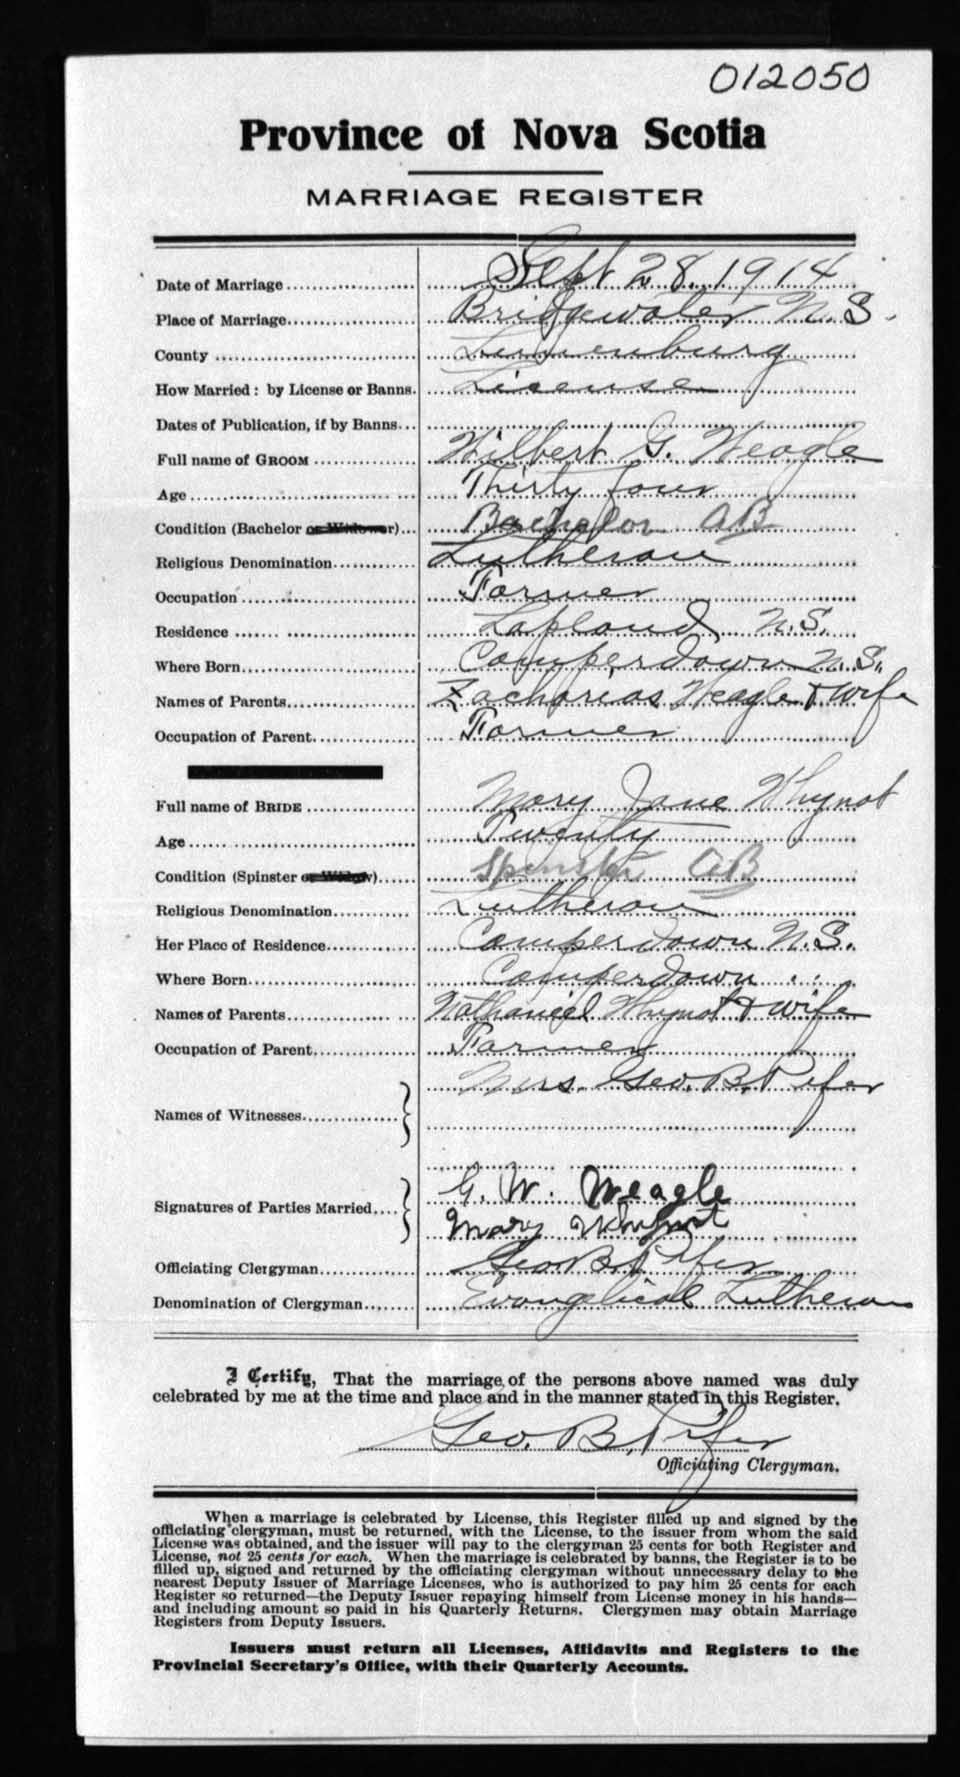 012050
Province of Nova Scotia
MARRIAGE REGISTER
Date of Marriage Sept 28. 1914
Place of Marriage Bridgewater N.S.
County Lunenburg
How Married: by License or Banns. License
Dates of Publication, if by Banns
Full name of GROOM Wilbert G. Weagle
Age Thirty four
Condition (Bachelor or Widower) Bachelor AB
Religious Denomination Lutheran
Occupation Farmer
Residence Lapland N.S.
Where Born Camperdown N.S.
Names of Parents Zacharias Weagle & wife
Occupation of Parent Farmer
Full name of BRIDE Mary Jane Whynot
Age Twenty
Condition (Spinster or Widow) Spinster AB
Religious Denomination Lutheran
Her Place of Residence Camperdown N.S.
Where Born Camperdown
Names of Parents Nathaniel Whynot & wife
Occupation of Parent Farmer
Names of Witnesses Mrs. Geo. B. Pifer
Signatures of Parties Married G. W. Weagle
Mary Whynot
Officiating Clergyman Geo B. Pifer
Denomination of Clergyman Evangelical Lutheran
I Certify, That the marriage of the persons above named was duly
celebrated by me at the time and place and in the manner stated in this Register.
Geo. B. Pifer
Officiating Clergyman.
When a marriage is celebrated by License, this Register filled up and signed by the
officiating clergyman, must be returned, with the License, to the issuer from whom the said
License was obtained, and the issuer will pay to the clergyman 25 cents for both Register and
License, not 25 cents for each. When the marriage is celebrated by banns, the Register is to be
filled up, signed and returned by the officiating clergyman without unnecessary delay to the
nearest Deputy Issuer of Marriage Licenses, who is authorized to pay him 25 cents for each
Register so returned—the Deputy Issuer repaying himself from License money in his hands—
and including amount so paid in his Quarterly Returns. Clergymen may obtain Marriage
Registers from Deputy Issuers.
Issuers must return all Licenses, Affidavits and Registers to the
Provincial Secretary's Office, with their Quarterly Accounts.